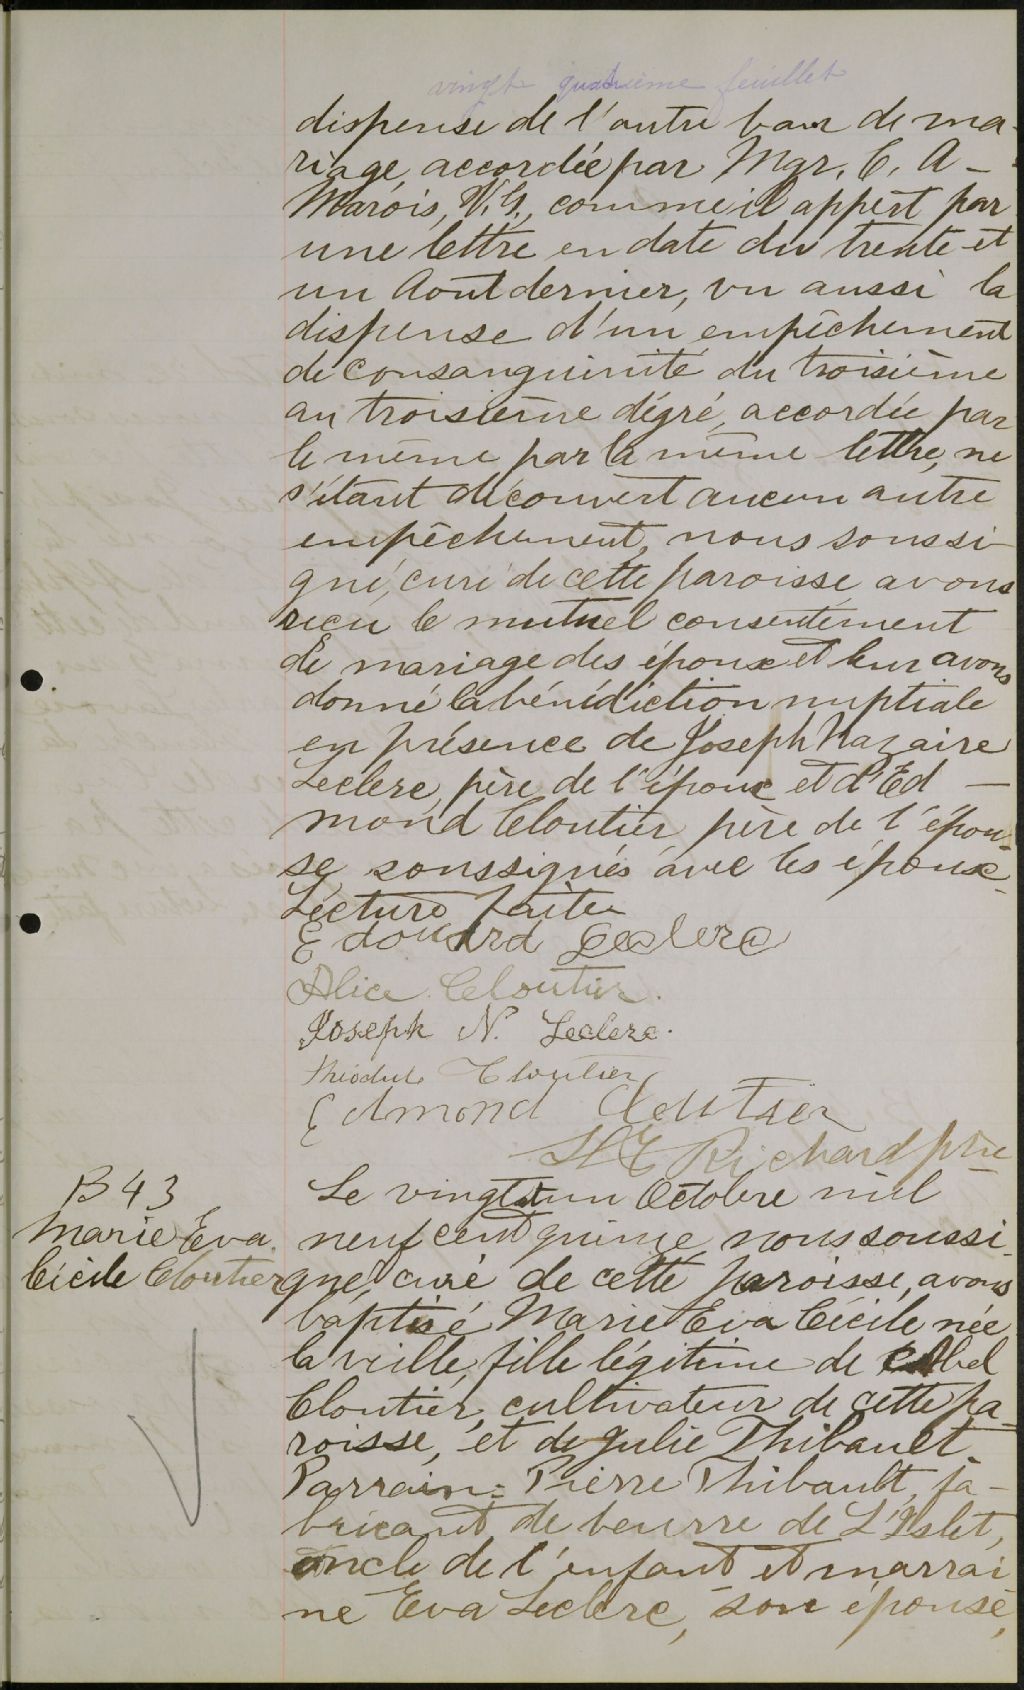 vingt quatrième feuillet
dispense de l'autre ban de ma-
riage accordée par Mgr. C. A-
Marois, V.G., comme il appert par
une lettre en date du trente et
un Aout dernier, vu aussi la
dispense d'un empêchement
de consanguinité du troisième
au troisième dégré, accordée par
le même par la même lettre, ne
s'étant découvert aucun autre
empêchement, nous soussi-
gné, curé de cette paroisse, avons
reçu le mutuel consentement
de mariage des époux et leur avons
donné la bénédiction nuptiale
en présence de Joseph Nazaire
Leclerc, père de l'époux et d'Ed-
mond Cloutier père de l'épou-
se, soussignés avec les époux-
Lecture faite.
Edouard Leclerc
Alice Cloutier.
Joseph N. Leclerc.
Théodule Cloutier
Edmond Cloutier
Richard ptre
B 43
Marie Eva
Cécile Cloutier
Le vingt un Octobre mil
neuf cent quinze nous soussi-
gné, curé de cette paroisse, avons
baptisé Marie Eva Cécile née
la veille, fille légitime de Abel
Cloutier, cultivateur de cette pa-
roisse, et de Julie Thibault
Parrain: Pierre Thibault, fa-
bricant de beurre de L'Islet,
oncle de l'enfant et marrai
ne Eva Leclerc, son épouse,